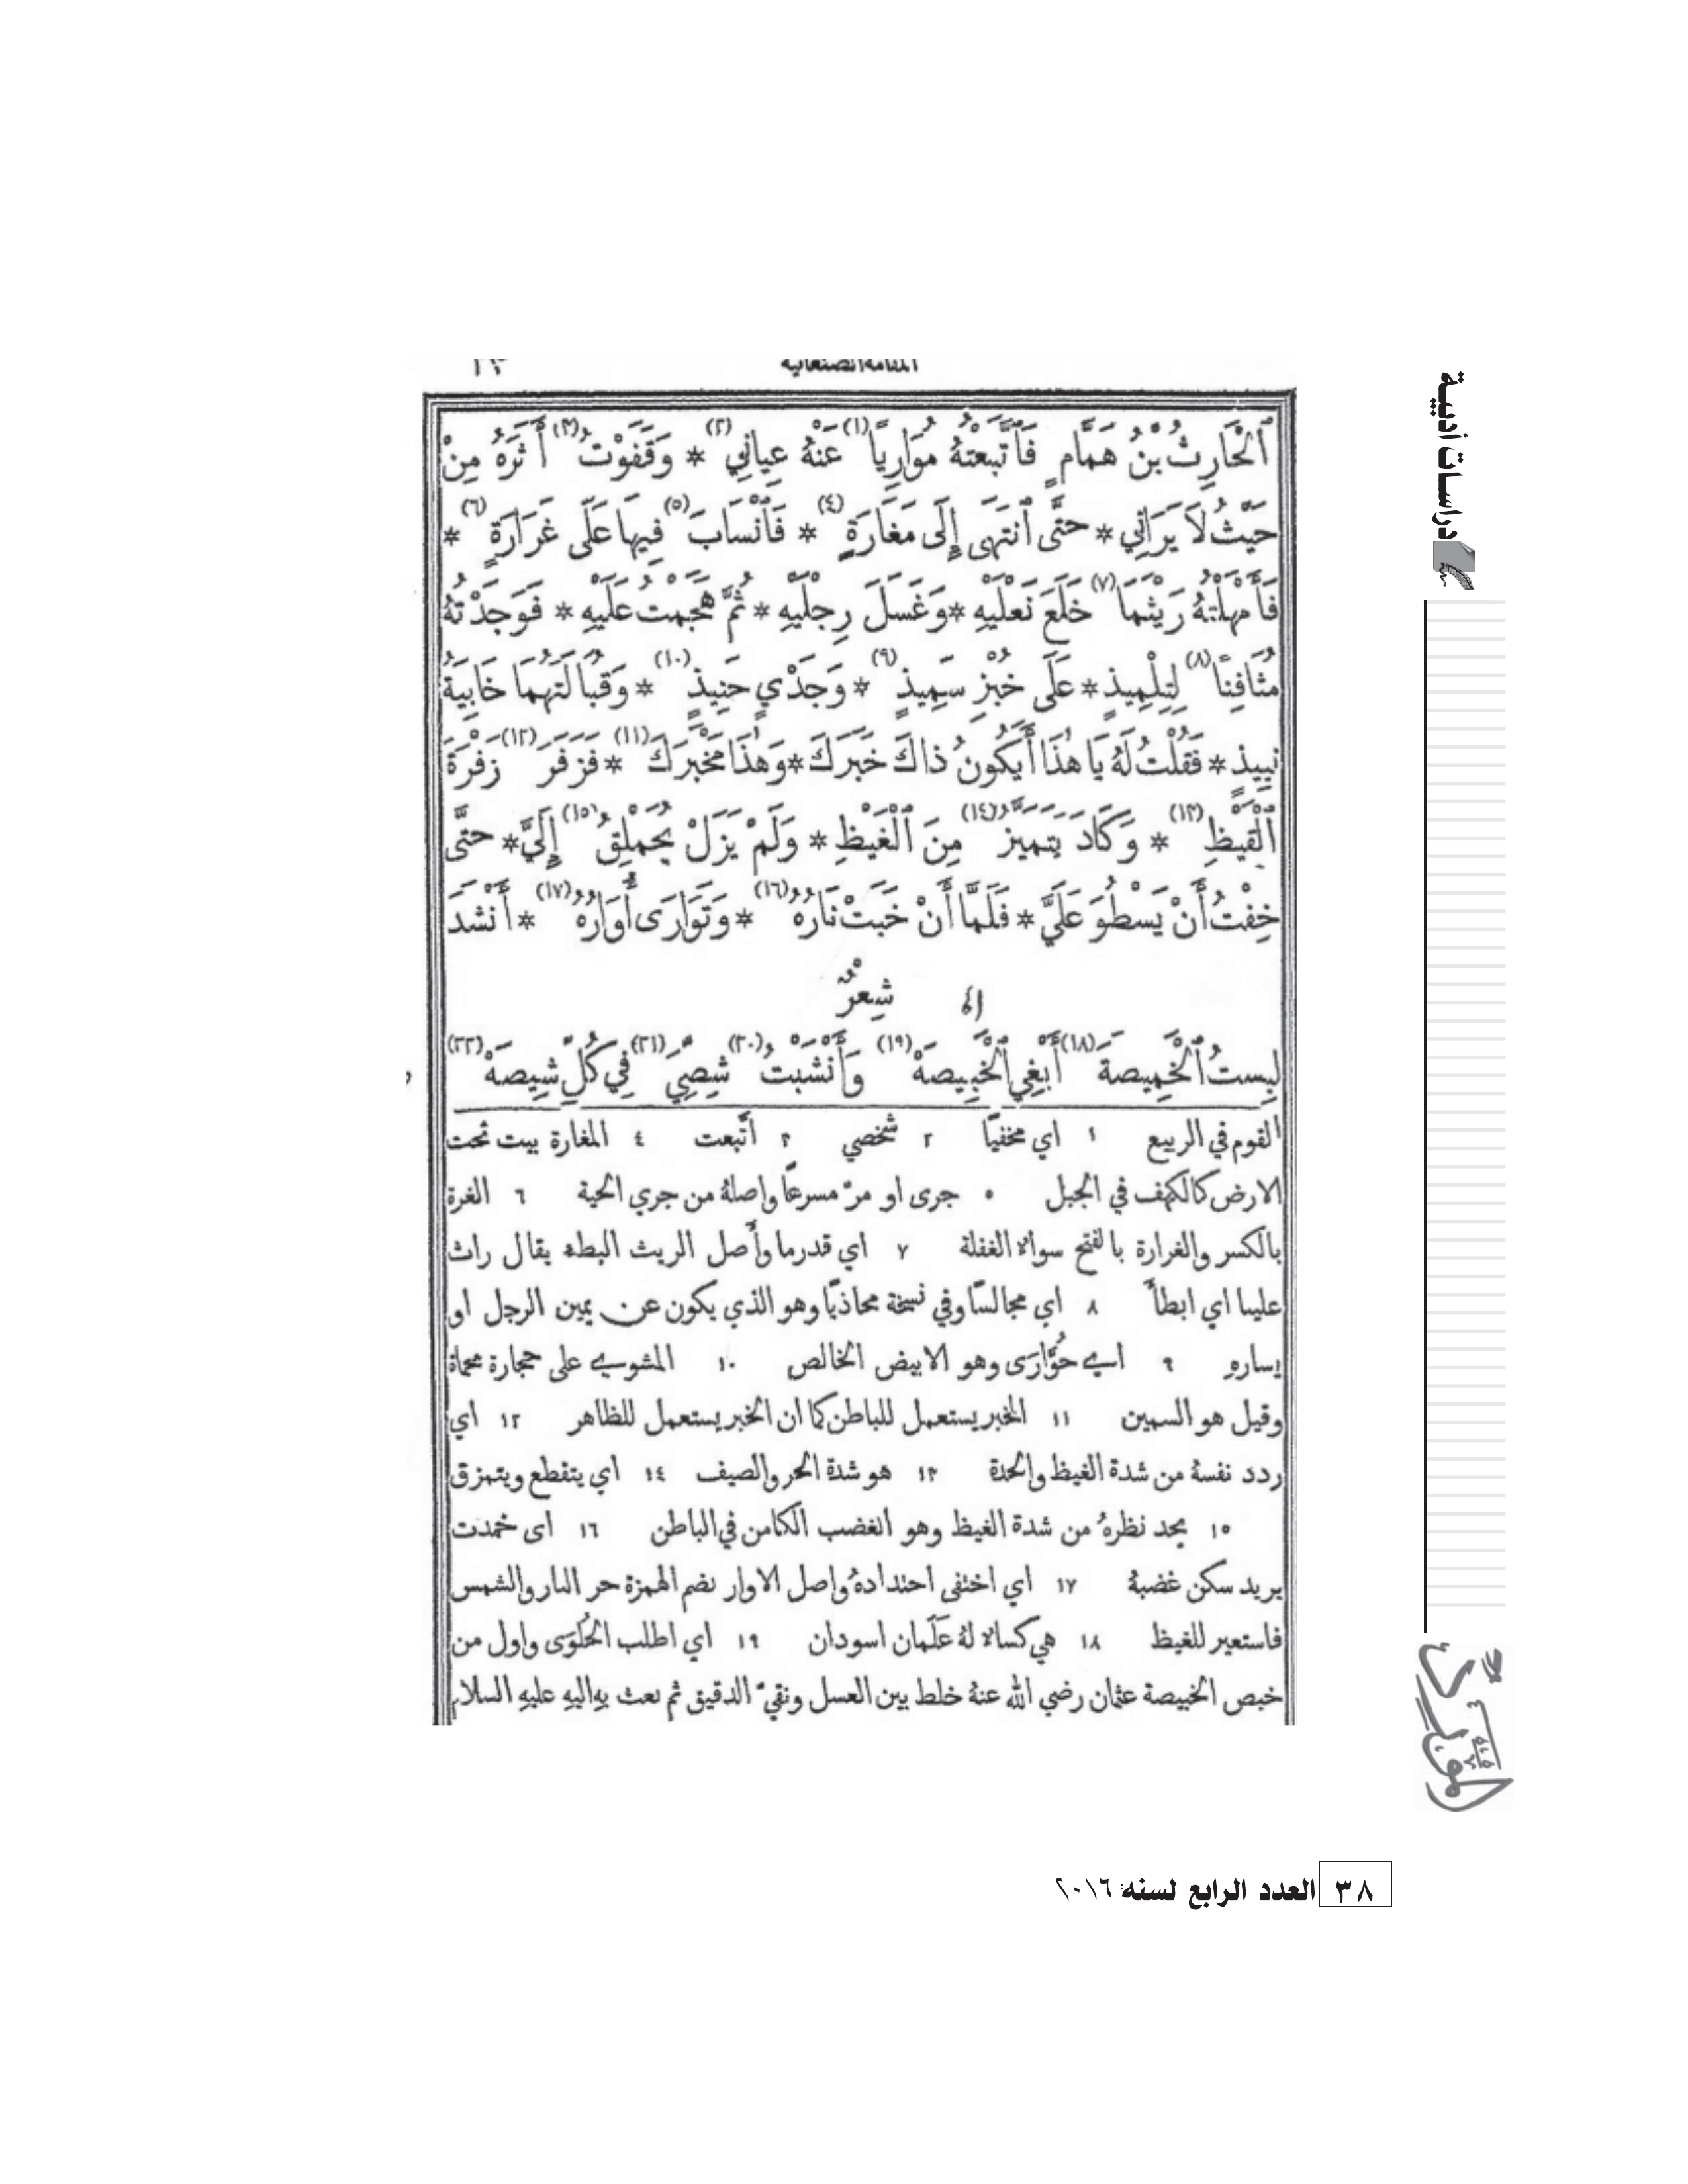 المقامة الصنعانية
ٱلْحَارِثُ بْنُ هَمَّامٍ فَٱتَّبَعْتُهُ مُوَارِيًا (١) عَنْهُ عِيَانِي (٢) * وَقَفَوْتُ (٣) أَثَرَهُ مِنْ
حَيْثُ لَا يَرَانِي * حَتَّى ٱنْتَهَى إِلَى مَغَارَةٍ (٤) * فَٱنْسَابَ (٥) فِيهَا عَلَى غَرَارَةٍ (٦) *
فَأَمْهَلْتُهُ رَيْثَمَا (٧) خَلَعَ نَعْلَيْهِ * وَغَسَلَ رِجْلَيْهِ * ثُمَّ هَجَمْتُ عَلَيْهِ * فَوَجَدْتُهُ
مُثَافِنًا (٨) لِتِلْمِيذٍ * عَلَى خُبْزٍ سَمِيذٍ (٩) * وَجَدْيٍ حَنِيذٍ (١٠) * وَقُبَالَتَهُمَا خَابِيَةُ
نَبِيذٍ * فَقُلْتُ لَهُ يَا هٰذَا أَيَكُونُ ذَاكَ خَبَرَكَ * وَهٰذَا مَخْبَرَكَ (١١) * فَزَفَرَ (١٢) زَفْرَةَ
ٱلْقَيْظِ (١٣) * وَكَادَ يَتَمَيَّزُ (١٤) مِنَ ٱلْغَيْظِ * وَلَمْ يَزَلْ يُحَمْلِقُ (١٥) إِلَيَّ * حَتَّى
خِفْتُ أَنْ يَسْطُوَ عَلَيَّ * فَلَمَّا أَنْ خَبَتْ نَارُهُ (١٦) * وَتَوَارَى أُوَارُهُ (١٧) * أَنْشَدَ
شِعْرٌ
لَبِسْتُ ٱلْخَمِيصَةَ (١٨) أَبْغِي ٱلْخَبِيصَهْ (١٩) وَأَنْشَبْتُ (٢٠) شِصِّيَ (٢١) فِي كُلِّ شِيصَهْ (٢٢)
القوم في الربيع ١ اي مخفيًا ٢ شخصي ٣ اتَّبعت ٤ المغارة بيت تحت
الارض كالكهف في الجبل ٥ جرى او مرّ مسرعًا واصلهُ من جري الحية ٦ الغرة
بالكسر والغرارة بالفتح سوالا الغفلة ٧ اي قدرما وأصل الريث البطء يقال راث
علينا اي ابطأَ ٨ اي مجالسًا وفي نسخة محاذيًا وهو الذي يكون عن يمين الرجل او
يساره ٩ اي حُوَّارَى وهو الابيض الخالص ١٠ المشوي على حجارة محماة
وقيل هو السمين ١١ المخبر يستعمل للباطن كما ان الخبر يستعمل للظاهر ١٢ اي
ردد نفسهُ من شدة الغيظ والحدة ١٣ هو شدة الحر والصيف ١٤ اي يتقطع ويتمزق
١٥ يحد نظرهُ من شدة الغيظ وهو الغضب الكامن في الباطن ١٦ اى خمدت
يريد سكن غضبهُ ١٧ اي اختفى احتدادهُ واصل الاوار بضم الهمزة حر النار والشمس
فاستعير للغيظ ١٨ هي كسالا لهُ عَلَمان اسودان ١٩ اي اطلب الحُلْوَى واول من
خبص الخبيصة عثمان رضي الله عنهُ خلط بين العسل ونقيّ الدقيق ثم بعث به اليه عليه السلام
دراسات أدبية
المورد
٣٨ العدد الرابع لسنة ٢٠١٦